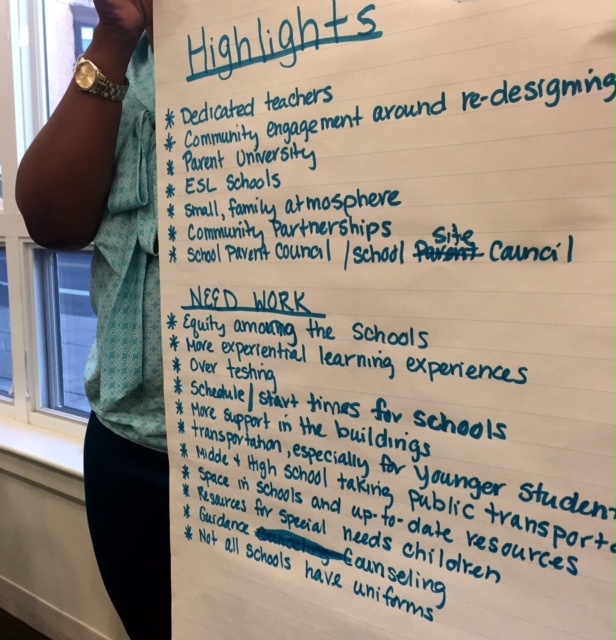 Highlights
* Dedicated teachers
* Community engagement around re-designing
* Parent University
* ESL Schools
* small, family atmosphere
* Community Partnerships
* School Parent Council / School Parent site Council
NEED WORK
* Equity amoung the Schools
* More experiential learning experiences
* Over testing
* Schedule / start times for schools
* More support in the buildings
* transportation, especially for Younger Student
* Middle + High school taking public transport
* Space in schools and up-to-date resources
* Resources for special needs children
* Guidance Counseling
* Not all schools have uniforms